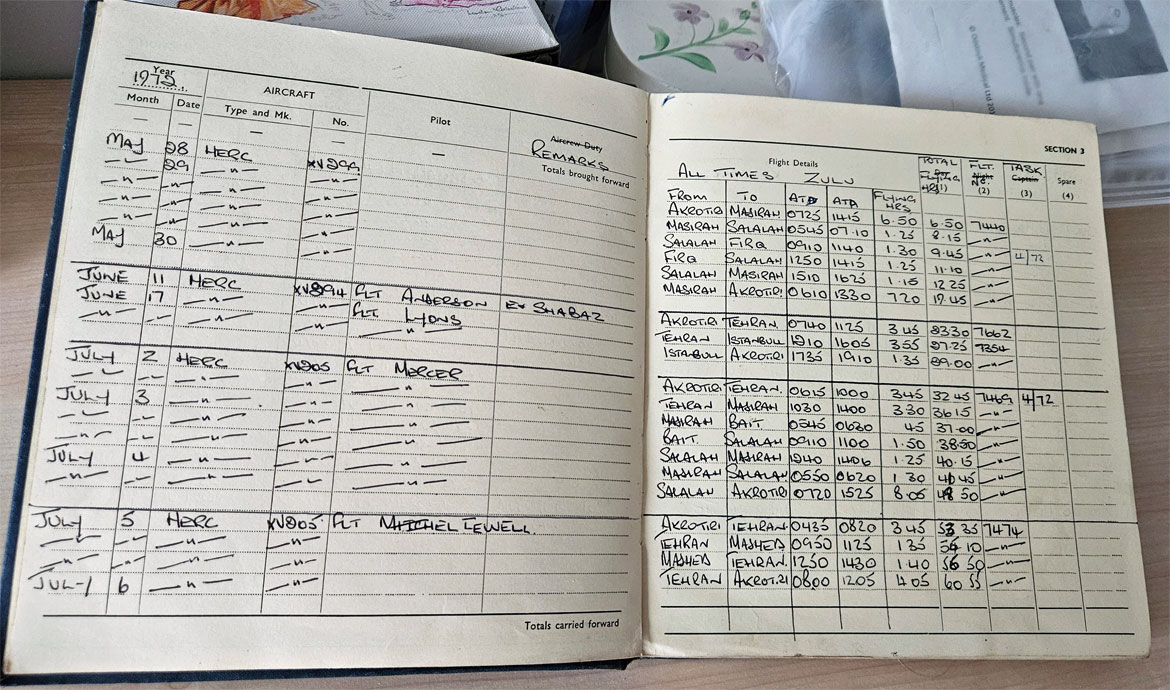 Year
1972
Month
Date
AIRCRAFT
Type and Mk.
No.
Pilot
Aircrew Duty
REMARKS
Totals brought forward
MAY 28 HERC XV299
29 —"— —"—
—"— —"— —"— —"—
—"— —"— —"— —"—
—"— —"— —"— —"—
MAY 30 —"— —"—
JUNE 11 HERC FLT ANDERSON EX SHABAZ
JUNE 17 —"— —"— FLT LYONS
—"— —"— —"— —"—
JULY 2 HERC FLT MERCER
—"— —"— —"— —"—
JULY 3 —"— —"— —"—
—"— —"— —"— —"—
—"— —"— —"— —"—
JULY 4 —"— —"— —"—
—"— —"— —"— —"—
JULY 5 HERC FLT MITCHEL TEWELL
—"— —"— —"—
—"— —"— —"—
JULY 6 —"— —"—
Totals carried forward
SECTION 3
Flight Details
ALL TIMES ZULU
TOTAL FLYING HRS (1)
FLT. Night NO. (2)
TASK Captain (3)
Spare (4)
FROM TO ATD ATA FLYING HRS
AKROTIRI MASIRAH 0725 1415 6.50 6.50 7440
MASIRAH SALALAH 0545 0710 1.25 8.15 —"—
SALALAH FIRQ 0910 1140 1.30 9.45 —"—
FIRQ SALALAH 1250 1415 1.25 11.10 —"— 4/72
SALALAH MASIRAH 1510 1625 1.15 12.25 —"—
MASIRAH AKROTIRI 0610 1330 7.20 19.45 —"—
AKROTIRI TEHRAN 0740 1125 3.45 23.30 7662
TEHRAN ISTANBULL 1210 1605 3.55 27.25 7354
ISTANBULL AKROTIRI 1735 1910 1.35 29.00 —"—
AKROTIRI TEHRAN 0615 1000 3.45 32.45 7469 4/72
TEHRAN MASIRAH 1030 1400 3.30 36.15 —"—
MASIRAH BAIT 0545 0630 45 37.00 —"—
BAIT SALALAH 0910 1100 1.50 38.50 —"—
SALALAH MASIRAH 1240 1406 1.25 40.15 —"—
MASIRAH SALALAH 0550 0620 1.30 —"—
SALALAH AKROTIRI 0720 1525 8.05 —"—
AKROTIRI TEHRAN 0435 0820 3.45 53 35 7474
TEHRAN MASHED 0950 1125 1.35 10 —"—
MASHED TEHRAN 1250 1430 1.40 56 50 —"—
TEHRAN AKROTIRI 0800 1205 4.05 60 55 —"—